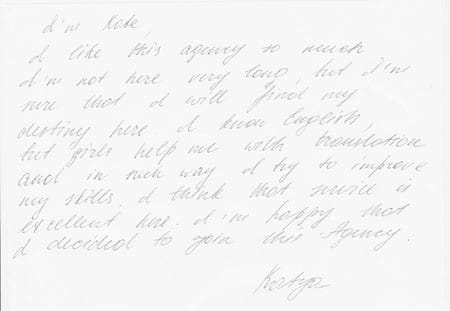 I'm Kate,
I like this agency so much
I'm not here very long, but I'm
sure that I will find my
destiny here. I know English,
but girls help me with translation
and in such way I try to improve
my skills. I think that service is
excellent here. I'm happy that
I decided to join this Agency.
Katya